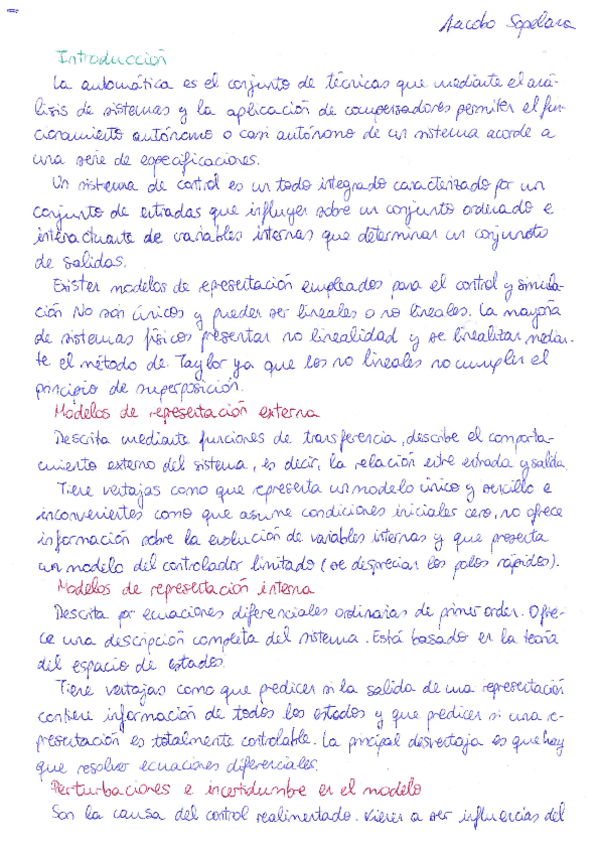 Jacobo Sopelana
Introducción
La automática es el conjunto de técnicas que mediante el aná-
lisis de sistemas y la aplicación de compensadores permiten el fun-
cionamiento autónomo o casi autónomo de un sistema acorde a
una serie de especificaciones.
Un sistema de control es un todo integrado caracterizado por un
conjunto de entradas que influyen sobre un conjunto ordenado e
interactuante de variables internas que determinan un conjunto
de salidas.
Existen modelos de representación empleados para el control y simula-
ción No son únicos y pueden ser lineales o no lineales. La mayoría
de sistemas físicos presentan no linealidad y se linealizan median-
te el método de Taylor ya que los no lineales no cumplen el
principio de superposición.
Modelos de representación externa
Descrita mediante funciones de transferencia, describe el comporta-
miento externo del sistema, es decir, la relación entre entrada y salida.
Tiene ventajas como que representa un modelo único y sencillo e
inconvenientes como que asume condiciones iniciales cero, no ofrece
información sobre la evolución de variables internas y que presenta
un modelo del controlador limitado (se desprecian los polos rápidos).
Modelos de representación interna
Descrita por ecuaciones diferenciales ordinarias de primer orden. Ofre-
ce una descripción completa del sistema. Está basado en la teoría
del espacio de estados.
Tiene ventajas como que predicen si la salida de una representación
contiene información de todos los estados y que predicen si una re-
presentación es totalmente controlable. La principal desventaja es que hay
que resolver ecuaciones diferenciales.
Perturbaciones e incertidumbre en el modelo
Son la causa del control realimentado. Vienen a ser influencias del